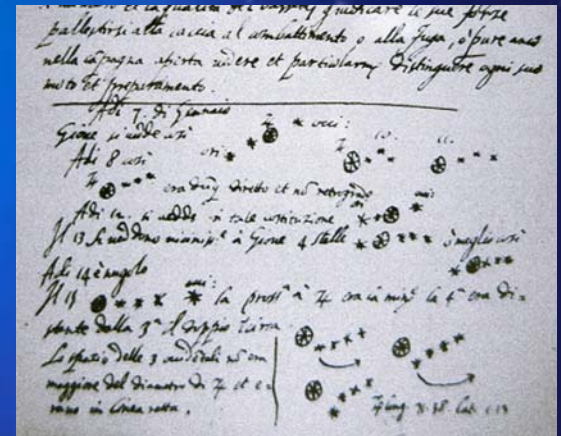 giudicare le sue forze
pallestirsi alla caccia al combattimento o alla fuga, ò pure anco
nella campagna aperta vedere et particolarm. distinguere ogni suo
moto et preparamento.
Adi 7. di Gennaio
Giove si vedde così occi:
Adi 8 così ori:
♃ era dūq diretto et nō retrogrado
Adi 12. si vedde in tale costituzione
Il 13 si veddono à Giove 4 stelle ò meglio così
Adi 14 è nugolo
Il 15 la pross.ª à ♃ era la min.ª la 4ª era di=
stante dalla 3ª il doppio
Lo spatio delle 3 nō era
maggiore del diametro di ♃ et e=
rano in linea retta.